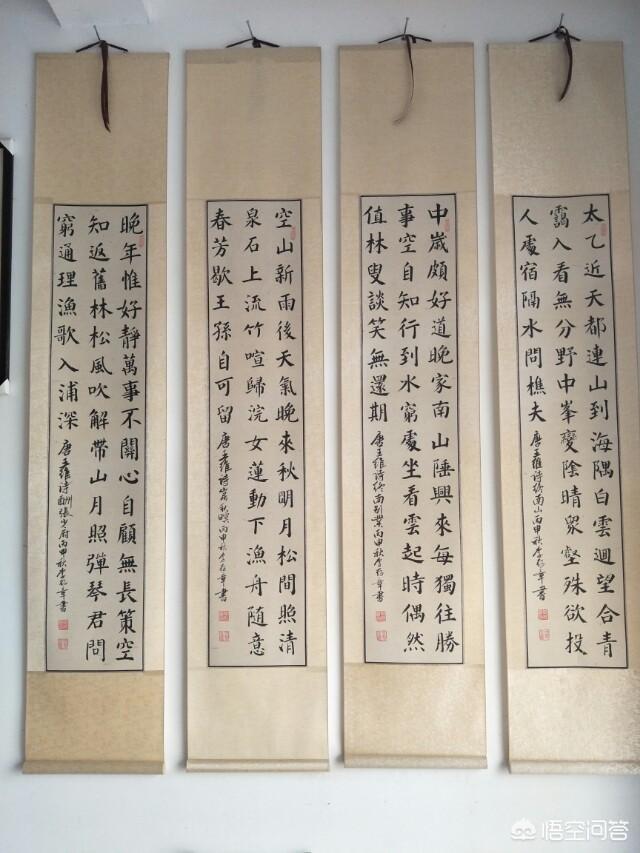 太乙近天都連山到海隅白雲迴望合青
靄入看無分野中峯變陰晴眾壑殊欲投
人處宿隔水問樵夫 唐王維詩終南山丙申秋李章書
中歲頗好道晚家南山陲興來每獨往勝
事空自知行到水窮處坐看雲起時偶然
值林叟談笑無還期 唐王維詩終南別業丙申秋李章書
空山新雨後天氣晚來秋明月松間照清
泉石上流竹喧歸浣女蓮動下漁舟隨意
春芳歇王孫自可留 唐王維詩山居秋暝丙申秋李章書
晚年惟好靜萬事不關心自顧無長策空
知返舊林松風吹解帶山月照彈琴君問
窮通理漁歌入浦深 唐王維詩酬張少府丙申秋李章書
悟空问答